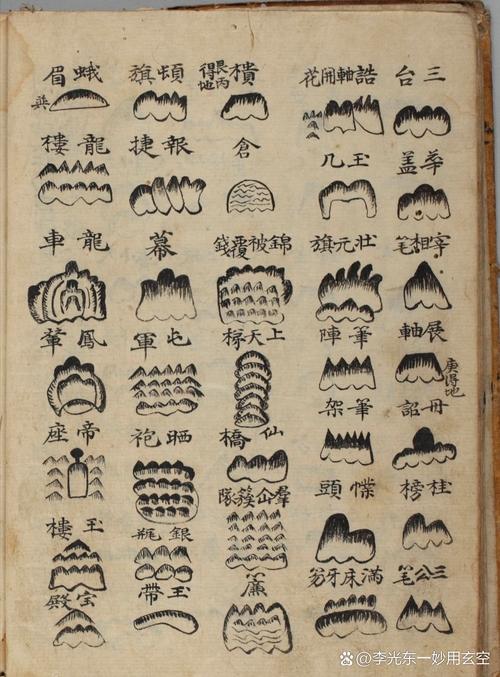 三台
華盖
宰相笔
展軸
庚得地
丹詔
桂榜
三公笔
誥軸開花
玉几
壮元旗
筆陣
筆架
幞頭
滿床牙笏
樻
艮丙得地
倉
錦被覆錢
上天梯
仙橋
羣山簇隊
簾
頓旗
報捷
幕
屯軍
晒袍
銀瓶
玉帶
蛾眉
龍樓
龍車
鳳輦
帝座
玉樓
宝殿
@李光东一妙用玄空